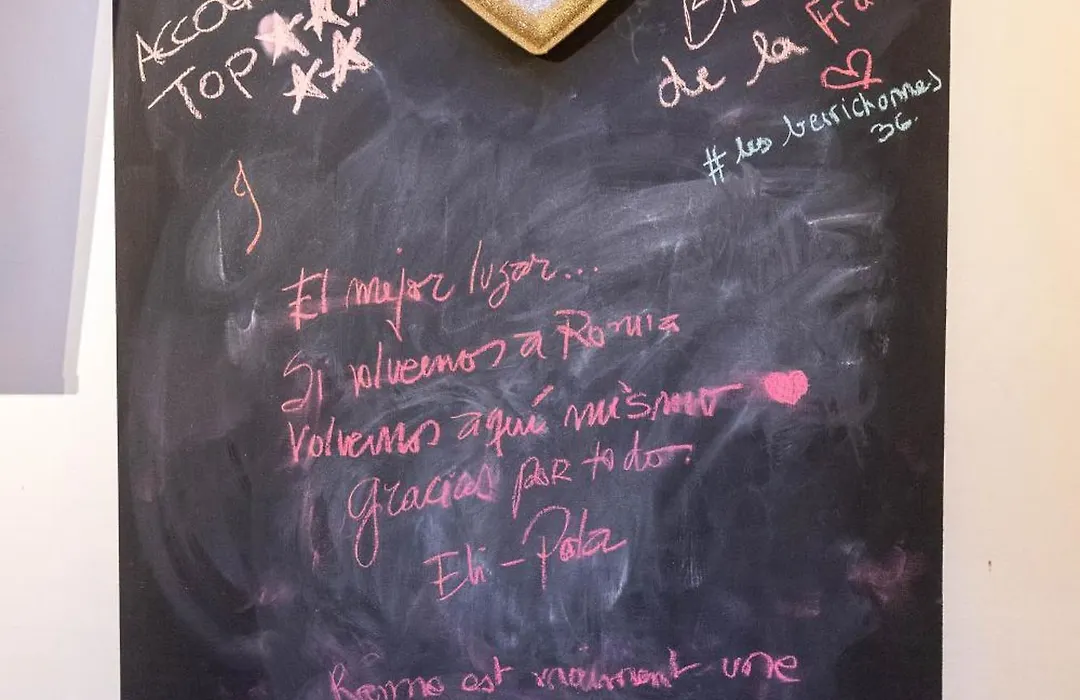 TOP
de la Fra
#les berrichonnes
36
El mejor lugar...
Si volvemos a Roma
volvemos aquí mismo
Gracias por todo.
Eli-Pola
Rome est vraiment une